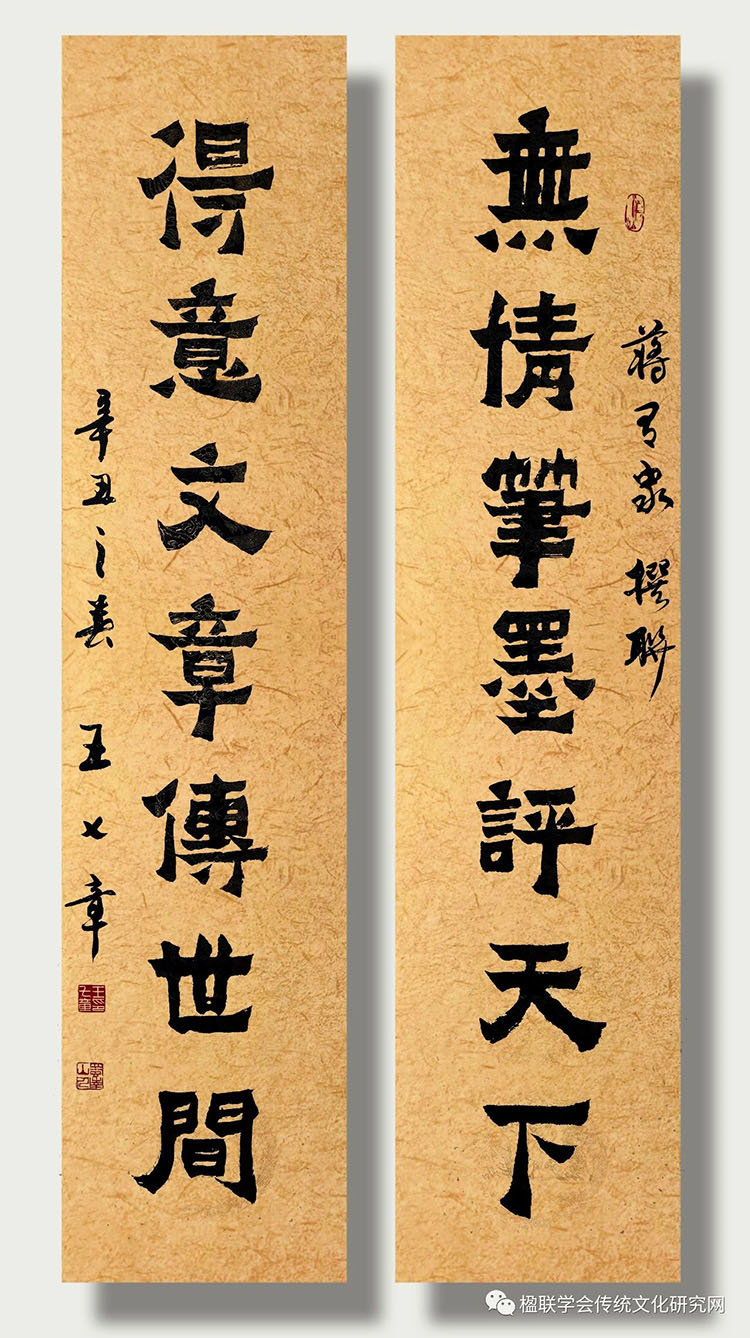 無情筆墨評天下
蒋有泉 撰聯
得意文章傳世間
辛丑之春 王七章
楹联学会传统文化研究网